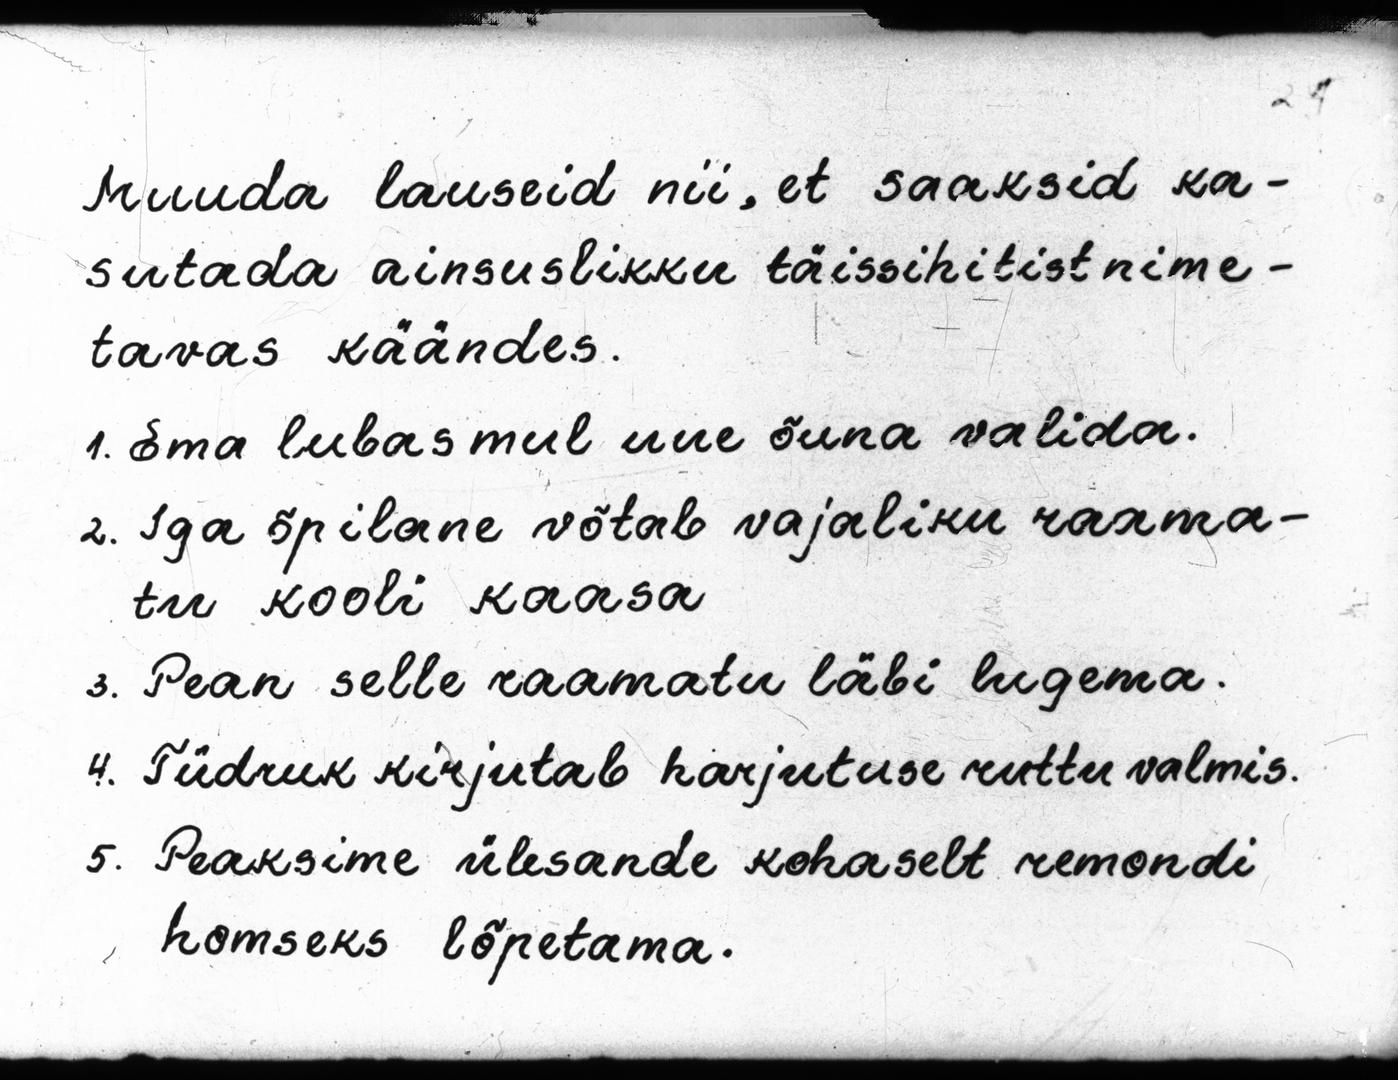 24
Muuda lauseid nii, et saaksid ka-
sutada ainsuslikku täissihitist nime-
tavas käändes.
1. Ema lubas mul uue õuna valida.
2. Iga õpilane võtab vajaliku raama-
tu kooli kaasa
3. Pean selle raamatu läbi lugema.
4. Tüdruk kirjutab harjutuse ruttu valmis.
5. Peaksime ülesande kohaselt remondi
homseks lõpetama.